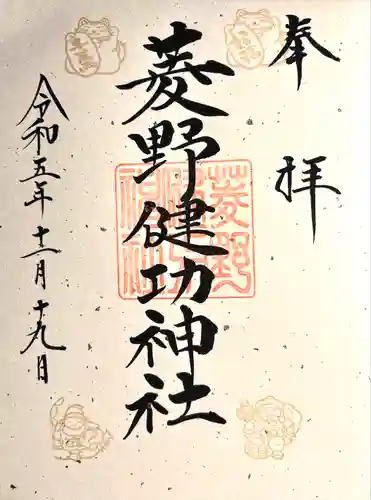 奉拝
菱野健功神社
令和五年十一月十九日
菱野健功神社